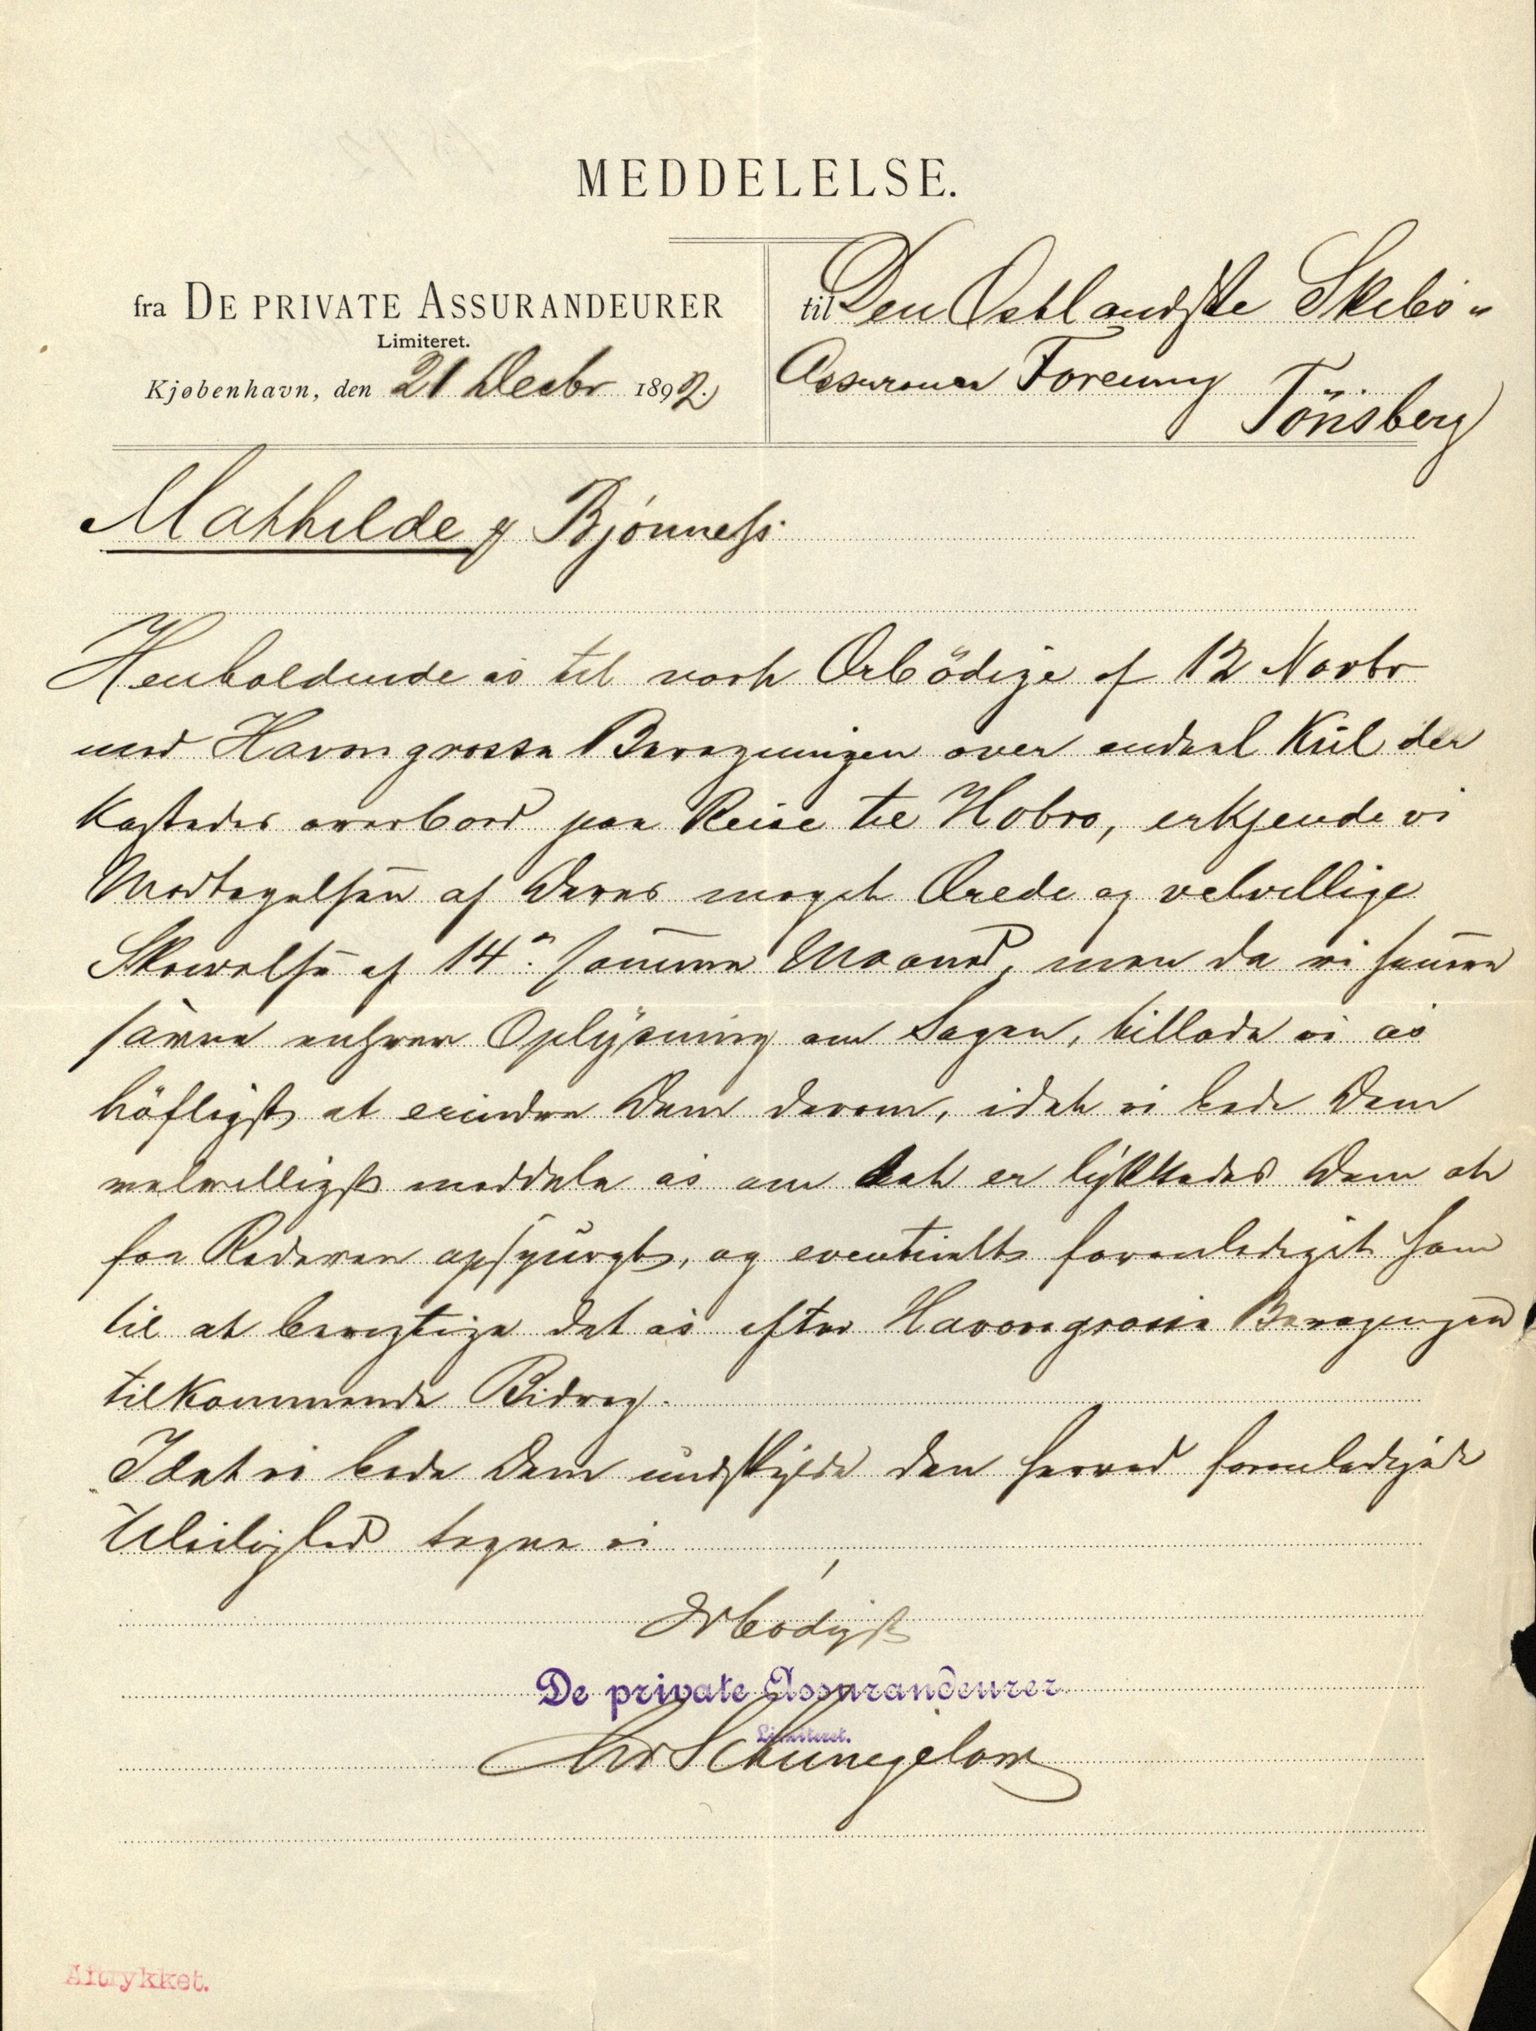 MEDDELELSE.
fra DE PRIVATE ASSURANDEURER
Limiteret.
Kjøbenhavn, den 21 Decbr 1892.
til Den Ostlandske Skibs-
Assurance Forening
Tönsberg
Mathilde Bjönness.
Henholdende os til vort Ærbödige af 12 Novbr
med Havarigrosse Beregningen over endeel Kul der
kastedes overbord paa Reise til Hobro, erkjende vi
Modtagelsen af Deres meget Ærede og velvillige
Skrivelse af 14de samme Maaned, men da vi senere
savne enhver Oplysning om Sagen, tillade vi os
höfligst at erindre Dem derom, idet vi bede Dem
velvilligst meddele os om det er lykkedes Dem at
faa Rederen opspurgt, og eventuelt foranlediget ham
til at berigtige det os efter Havarigrosse Beregningen
tilkommende Bidrag.
Idet vi bede Dem undskylde den herved foranledigede
Uleilighed tegne vi
Ærbödigst
De private Assurandeurer
Limiteret.
Aftrykket.